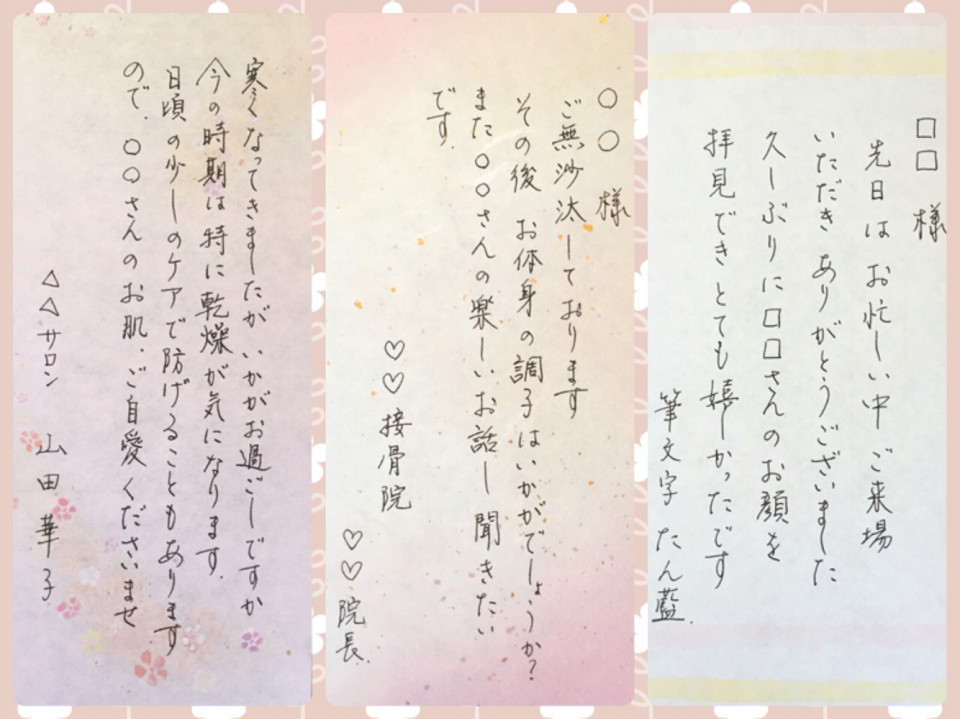 □□ 様
先日は お忙しい中 ご来場
いただき ありがとうございました
久しぶりに□□さんのお顔を
拝見できとても 嬉しかったです
筆文字 たん藍.
○○ 様
ご無沙汰しております
その後 お体身の調子はいかがでしょうか?
また○○さんの楽しいお話し聞きたい
です.
♡♡接骨院
♡♡院長.
寒くなってきましたが いかがお過ごしですか
今の時期は特に乾燥が気になります.
日頃の少しのケアで防げることもあります
ので. ○○さんのお肌.ご自愛くださいませ
△△サロン 山田 華子